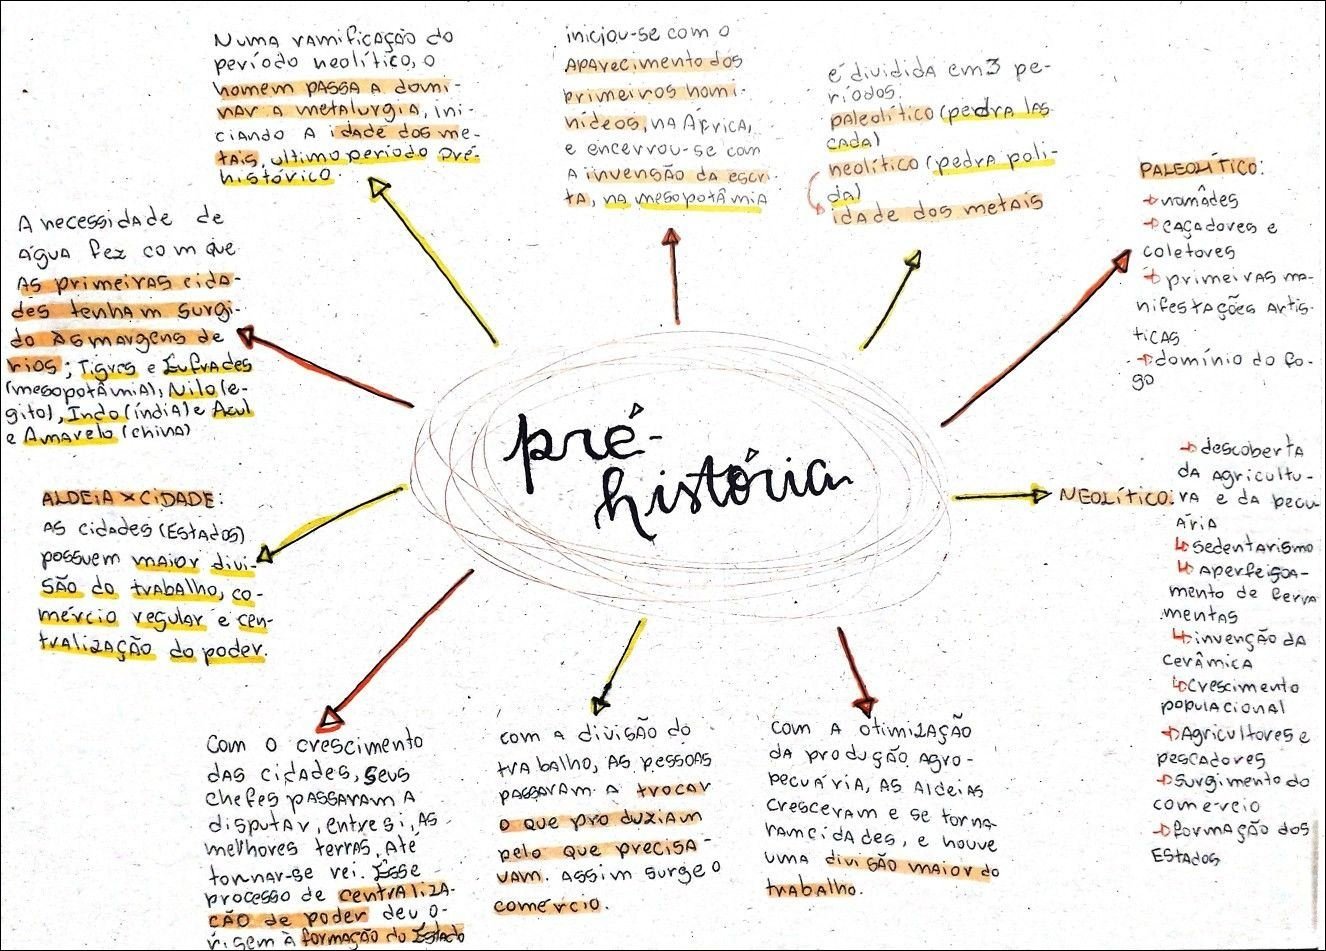 Numa ramificação do
período neolítico, o
homem passa a domi-
nar a metalurgia, ini-
ciando a idade dos me-
tais, ultimo período pré-
histórico.
iniciou-se com o
aparecimento dos
primeiros homi-
nídeos, na África,
e encerrou-se com
a invenção da escri-
ta, na mesopotâmia
é dividida em 3 pe-
ríodos:
paleolítico (pedra las
cada)
neolítico (pedra poli-
da)
idade dos metais
PALEOLÍTICO:
nomâdes
caçadores e
coletores
primeiras ma-
nifestações artís-
ticas
domínio do fo-
go
A necessidade de
água fez com que
as primeiras cida-
des tenham surgi-
do às margens de
rios; Tigres e Eufrades
(mesopotâmia), Nilo (e-
gito), Indo (índia) e Azul
e Amarelo (china)
pré-
história
NEOLÍTICO:
descoberta
da agricultu-
ra e da pecu
ária
sedentarismo
aperfeiçoa-
mento de ferra
mentas
invenção da
cerâmica
crescimento
populacional
Agricultores e
pescadores
surgimento do
comercio
formação dos
Estados
ALDEIA X CIDADE:
As cidades (Estados)
possuem maior divi-
são do trabalho, co-
mércio regular e cen-
tralização do poder.
Com o crescimento
das cidades, seus
chefes passaram a
disputar, entre si, as
melhores terras, até
tornar-se rei. Esse
processo de centraliza-
ção de poder deu o-
rigem à formação do Estado
com a divisão do
trabalho, as pessoas
passaram a trocar
o que produziam
pelo que precisa-
vam. Assim surge o
comércio.
com a otimização
da produção agro-
pecuária, as aldeias
cresceram e se torna-
ram cidades, e houve
uma divisão maior do
trabalho.